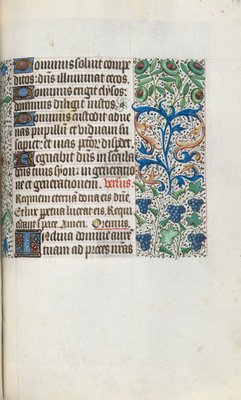 Dominus soluit compe
ditos: dñs illuminat cecos.
Dominus erigit elysos:
dominus diligit iustos.
Dominus custodit adue
nas pupillũ et viduam su
scipiet: et uias pctõr disper
Regnabit dñs in secula
deus tuus syon: in generatio
ne et generationem. Versus.
Requiem eternã dona eis dñe
Et lux perpetua luceat eis. Requi
escant ĩ pace. Amen. Oremus.
Inclina domine aurẽ
tuam ad preces nr̃as